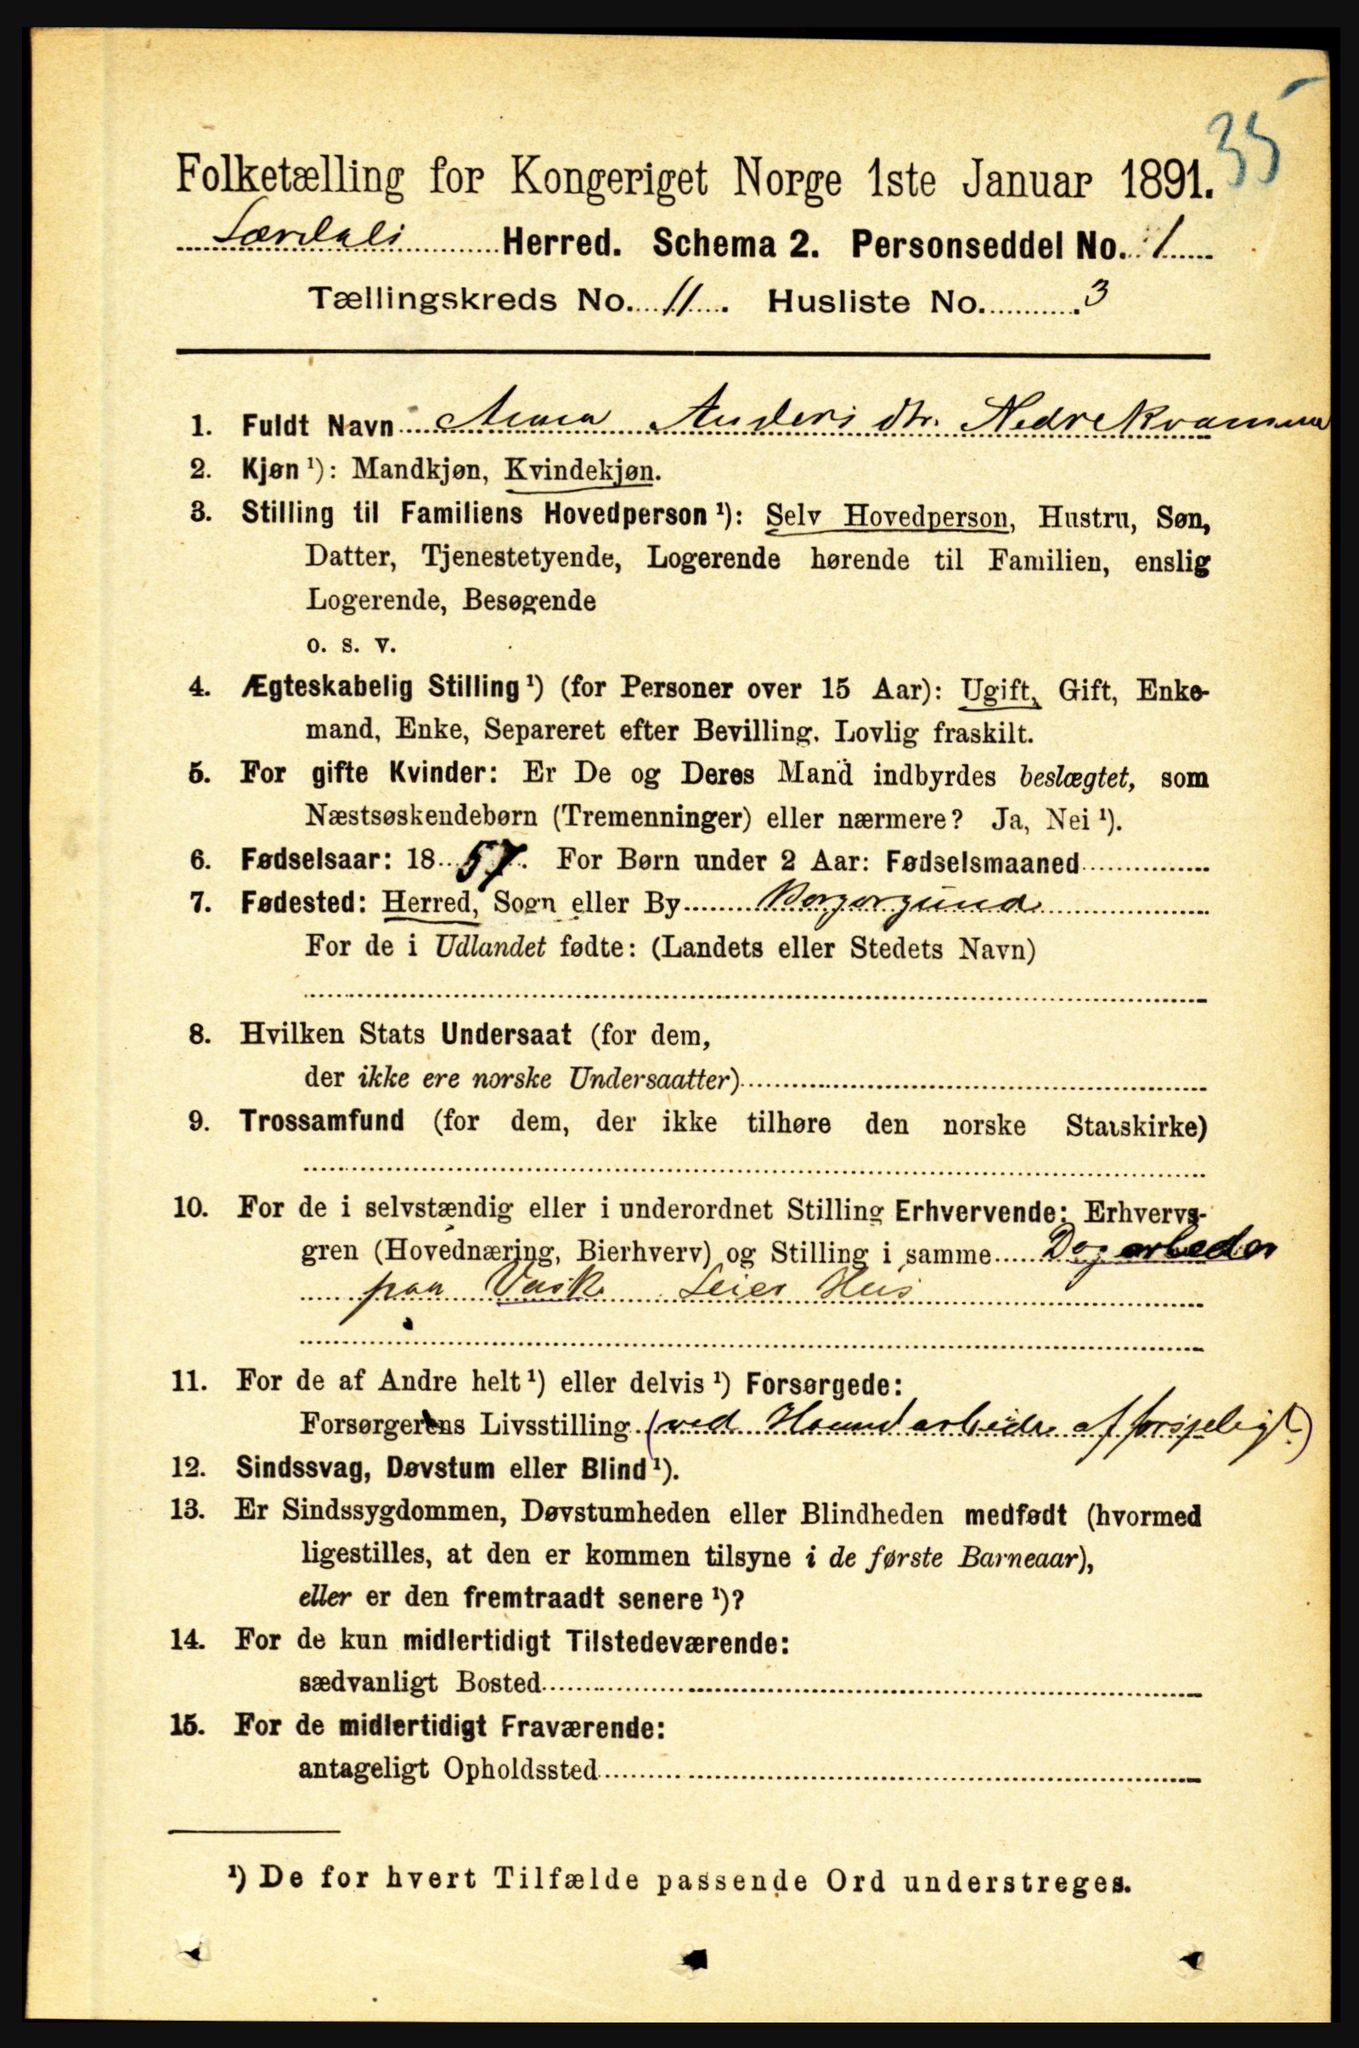 35
Folketælling for Kongeriget Norge 1ste Januar 1891.
Lærdals Herred. Schema 2. Personseddel No. 1
Tællingskreds No. 11. Husliste No. 3
1. Fuldt Navn Anna Anders dtr. Nedrekvamme
2. Kjøn ¹): Mandkjøn, Kvindekjøn.
3. Stilling til Familiens Hovedperson ¹): Selv Hovedperson, Hustru, Søn,
Datter, Tjenestetyende, Logerende hørende til Familien, enslig
Logerende, Besøgende
o. s. v.
4. Ægteskabelig Stilling ¹) (for Personer over 15 Aar): Ugift, Gift, Enke-
mand, Enke, Separeret efter Bevilling. Lovlig fraskilt.
5. For gifte Kvinder: Er De og Deres Mand indbyrdes beslægtet, som
Næstsøskendebørn (Tremenninger) eller nærmere? Ja, Nei ¹).
6. Fødselsaar: 1857. For Børn under 2 Aar: Fødselsmaaned
7. Fødested: Herred, Sogn eller By Borgorgund
For de i Udlandet fødte: (Landets eller Stedets Navn)
8. Hvilken Stats Undersaat (for dem,
der ikke ere norske Undersaatter)
9. Trossamfund (for dem, der ikke tilhøre den norske Statskirke)
10. For de i selvstændig eller i underordnet Stilling Erhvervende: Erhvervs-
gren (Hovednæring, Bierhverv) og Stilling i samme Dagarbeder
paa Vask Leier Hus
11. For de af Andre helt ¹) eller delvis ¹) Forsørgede:
Forsørgerens Livsstilling (ved Haandarbeide af forskjeligt)
12. Sindssvag, Døvstum eller Blind ¹).
13. Er Sindssygdommen, Døvstumheden eller Blindheden medfødt (hvormed
ligestilles, at den er kommen tilsyne i de første Barneaar),
eller er den fremtraadt senere ¹)?
14. For de kun midlertidigt Tilstedeværende:
sædvanligt Bosted
15. For de midlertidigt Fraværende:
antageligt Opholdssted
¹) De for hvert Tilfælde passende Ord understreges.